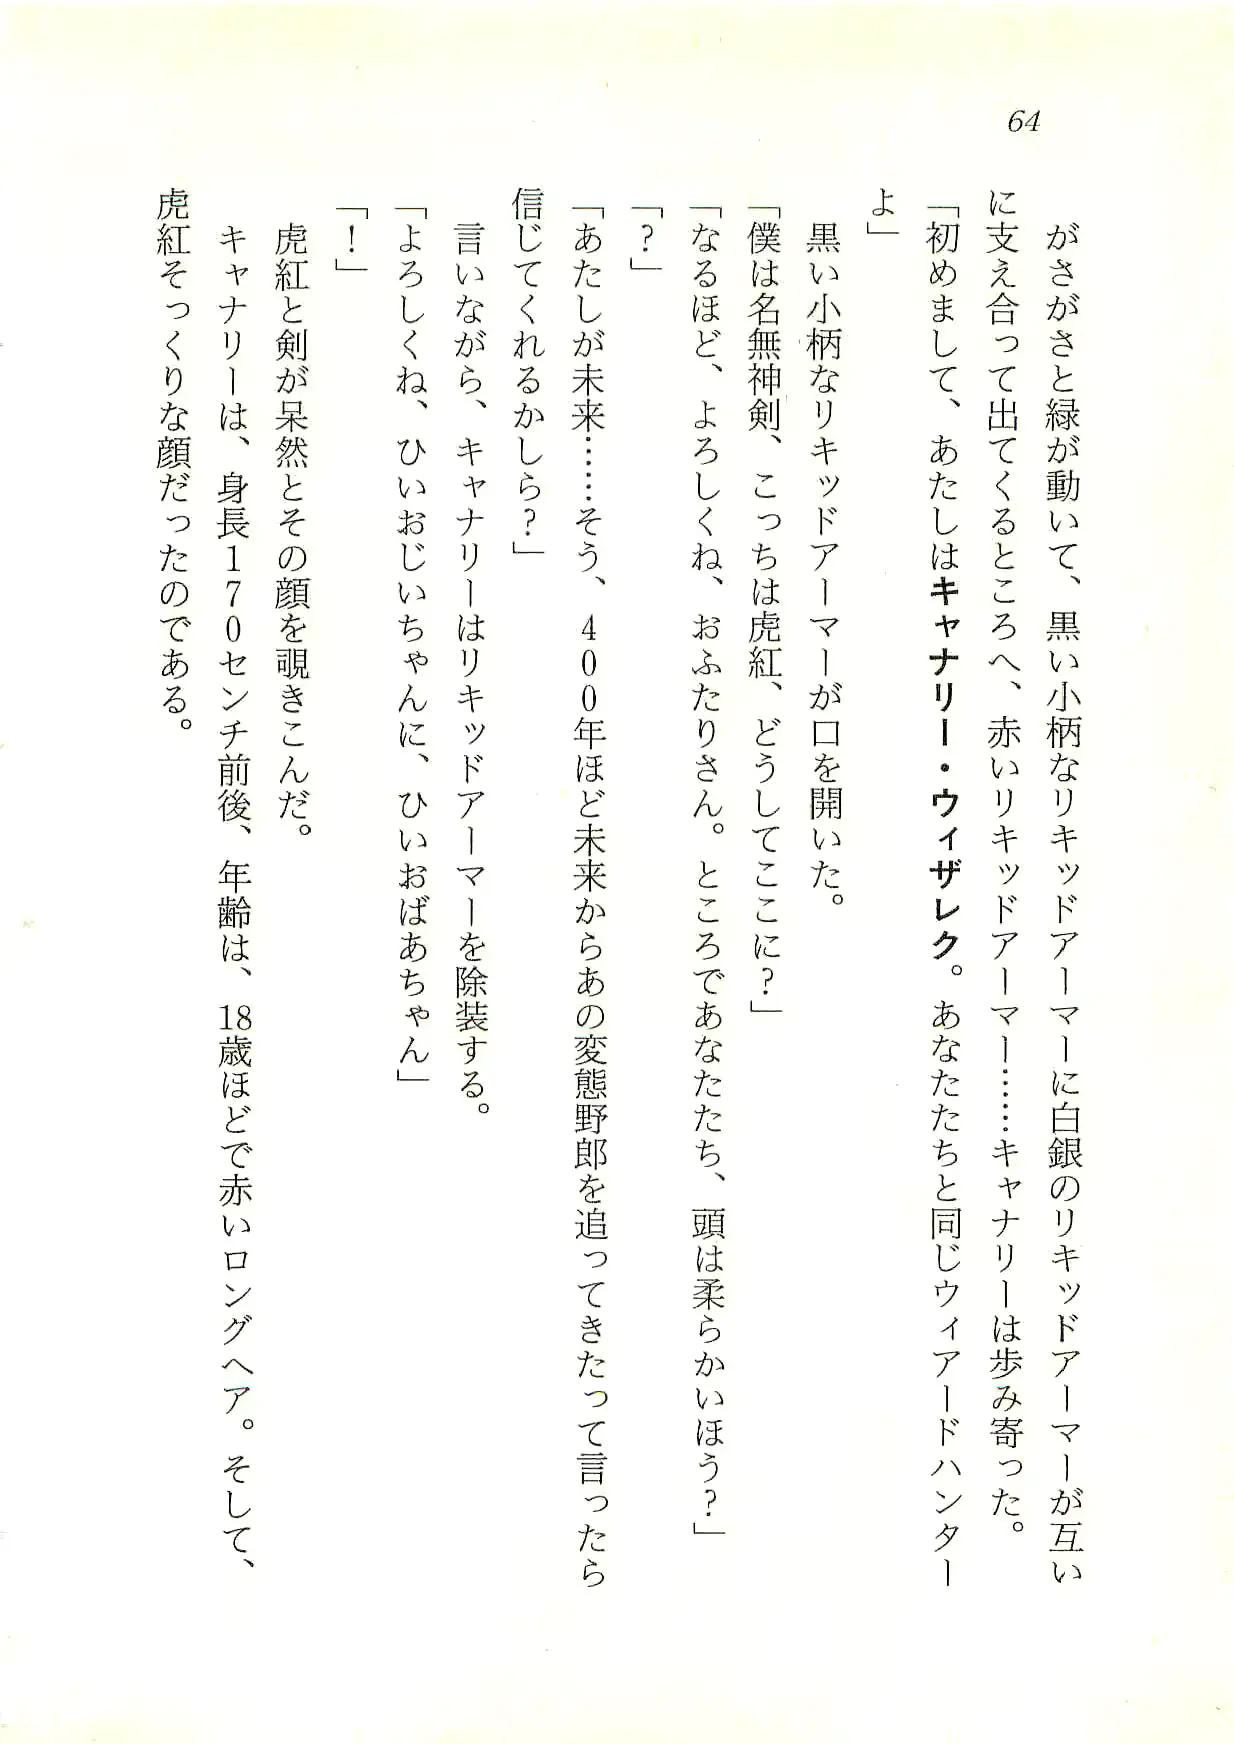 64
がさがさと緑が動いて、黒い小柄なリキッドアーマーに白銀のリキッドアーマーが互い
に支え合って出てくるところへ、赤いリキッドアーマー……キャナリーは歩み寄った。
「初めまして、あたしはキャナリー・ウィザレク。あなたたちと同じウィアードハンター
よ」
黒い小柄なリキッドアーマーが口を開いた。
「僕は名無神剣、こっちは虎紅、どうしてここに?」
「なるほど、よろしくね、おふたりさん。ところであなたたち、頭は柔らかいほう?」
「?」
「あたしが未来……そう、400年ほど未来からあの変態野郎を追ってきたって言ったら
信じてくれるかしら?」
言いながら、キャナリーはリキッドアーマーを除装する。
「よろしくね、ひいおじいちゃんに、ひいおばあちゃん」
「!」
虎紅と剣が呆然とその顔を覗きこんだ。
キャナリーは、身長170センチ前後、年齢は、18歳ほどで赤いロングヘア。そして、
虎紅そっくりな顔だったのである。